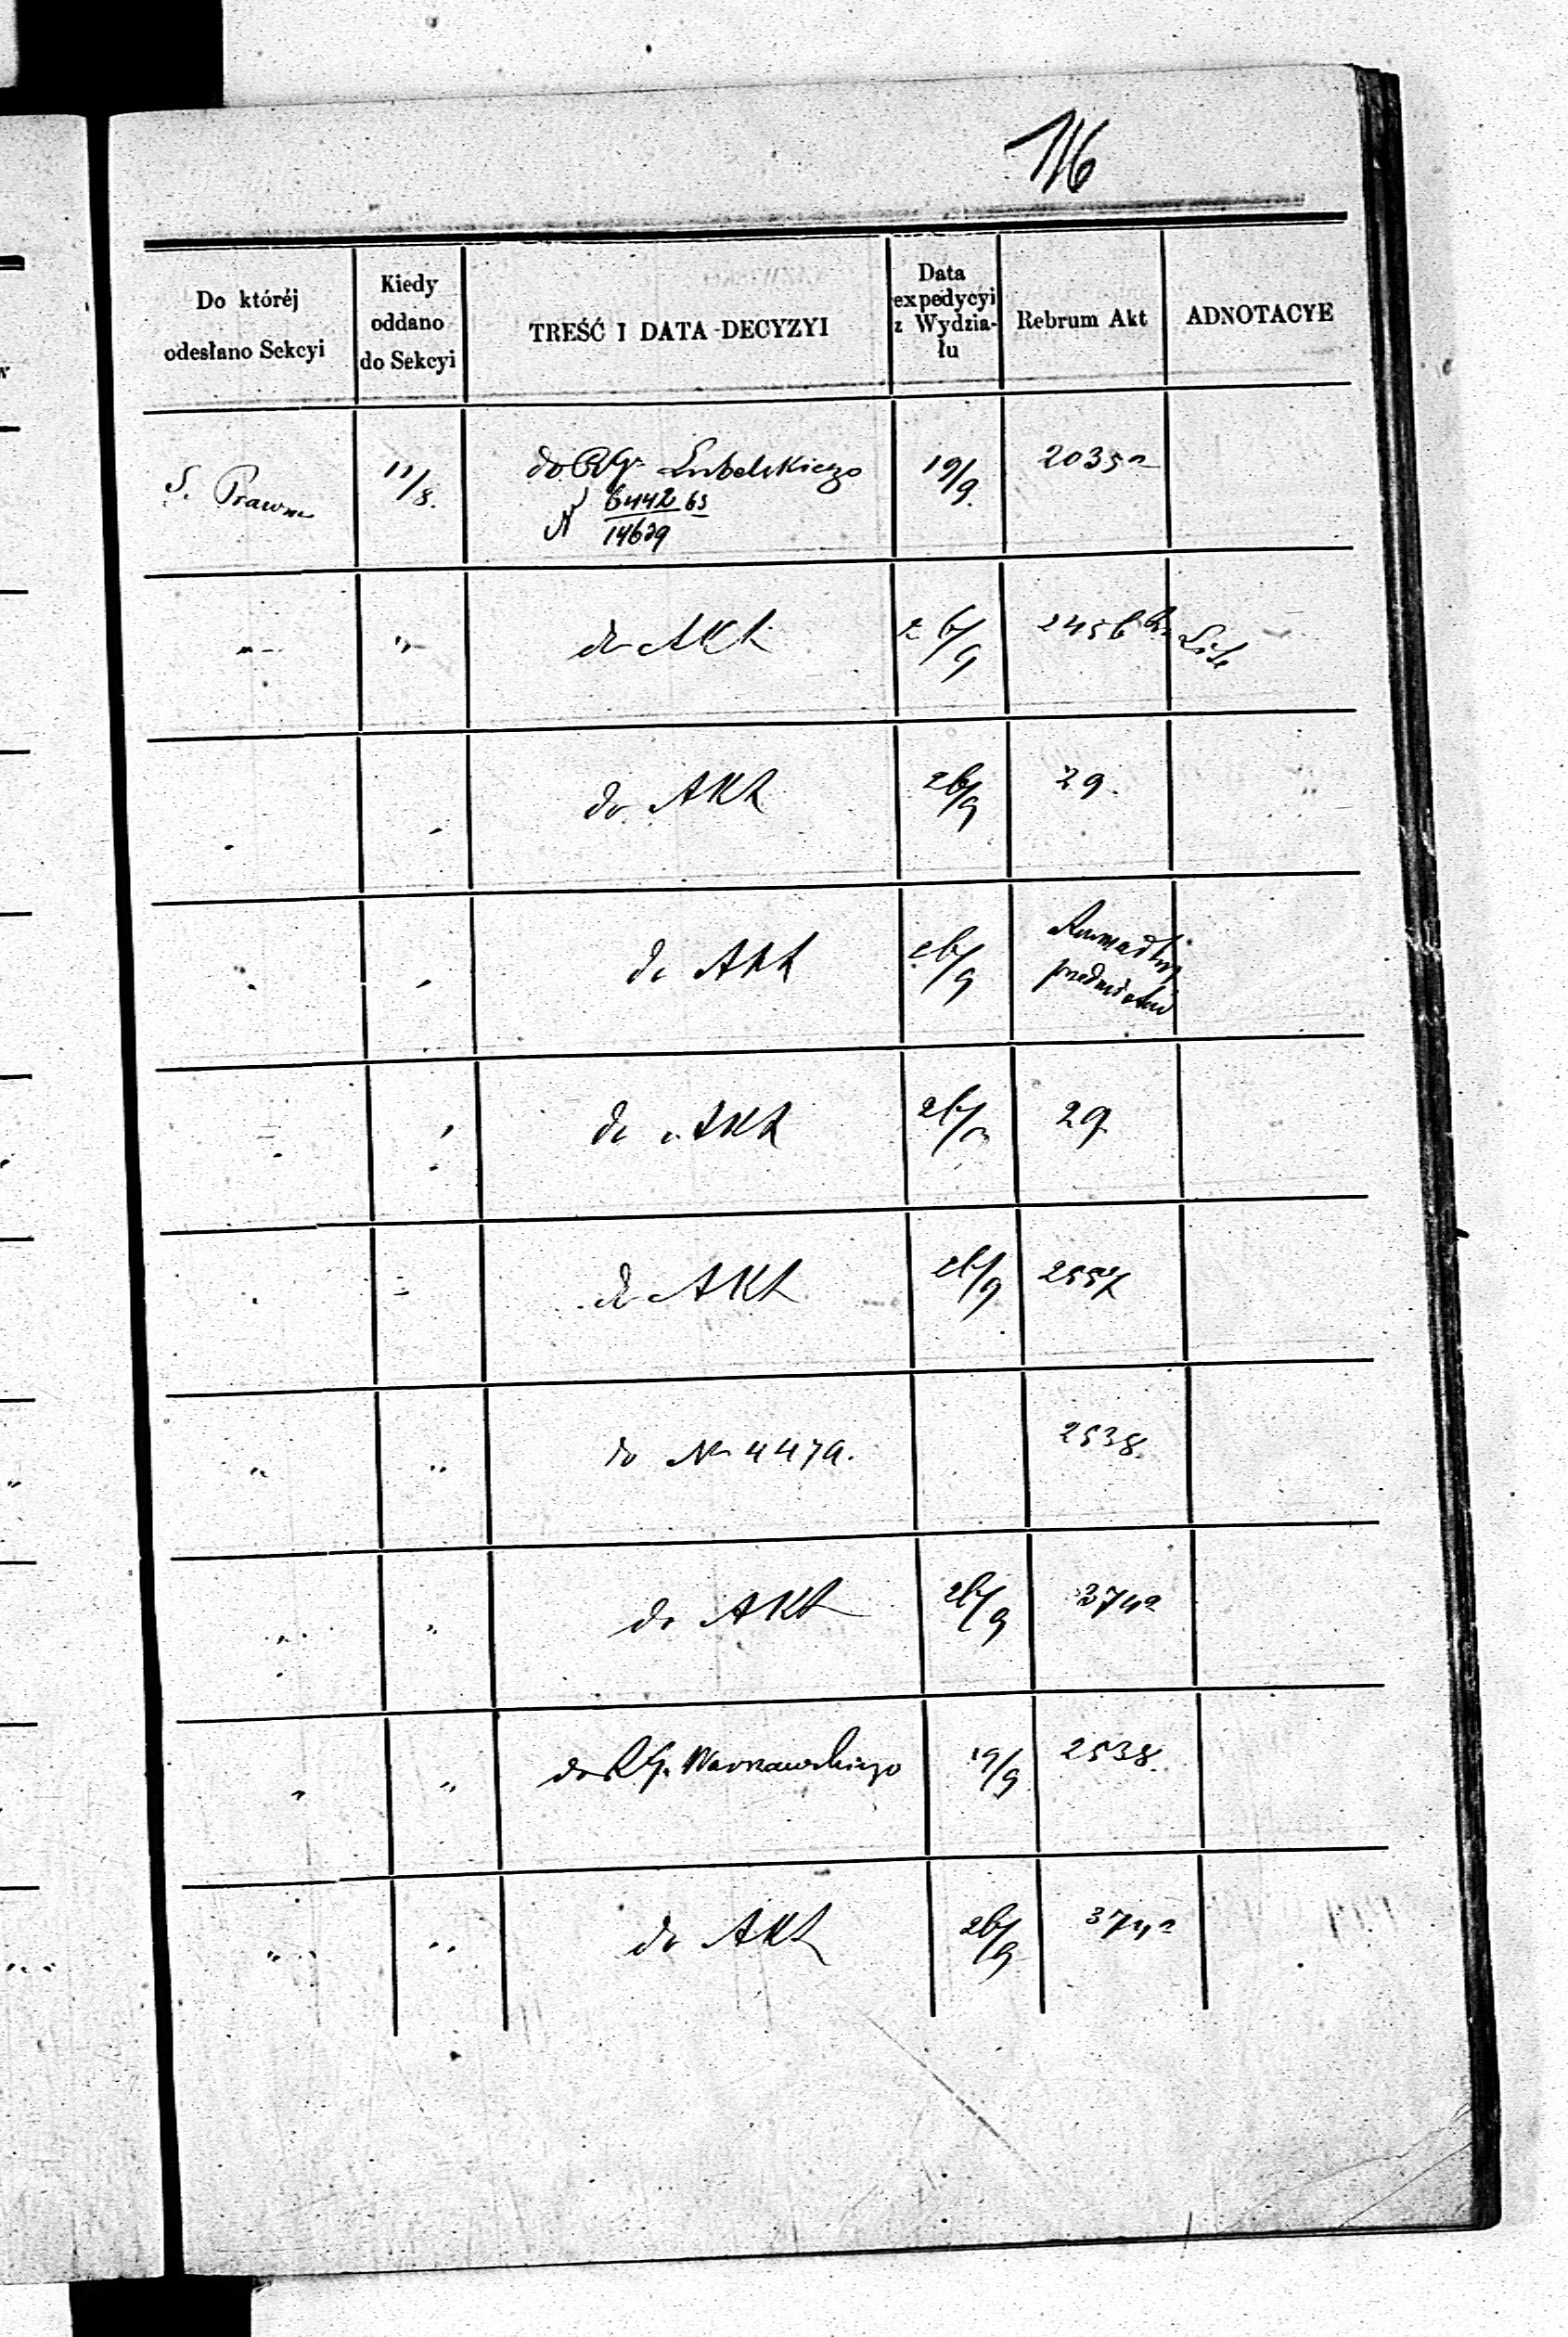 116
Do któréj odesłano Sekcyi
Kiedy oddano do Sekcyi
TREŚĆ I DATA DECYZYI
Data expedycyi z Wydzia-łu
Rebrum Akt
ADNOTACYE
S. Prawna 11/8. do RG. Lubelskiego 19/9. 2035a
N 6442 63
14629
" " do Akt 26/9 2456
do Akt 26/9 29.
do Akt 26/9
do Akt 26/9 29
do Akt 26/9 2557
" " do No 4479. 2538.
" " do Akt 26/9 374a
" " do RG. Warszawskiego 19/9 2538.
" " do Akt 26/9 374a